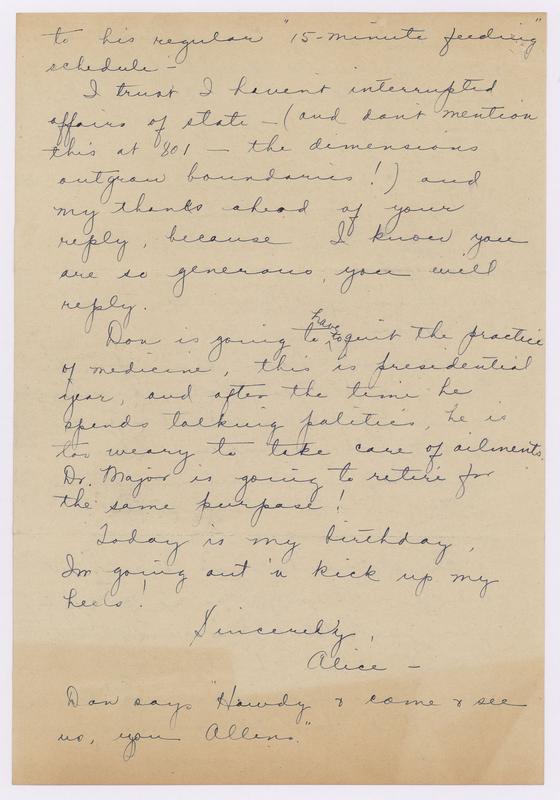 to his regular "15-minute feeding"
schedule -
I trust I haven't interrupted
affairs of state - (and don't mention
this at 801 - the dimensions
outgrow boundaries!) and
my thanks ahead of your
reply, because I know you
are so generous, you will
reply.
Don is going to have to quit the practice
of medicine, this is presidential
year, and after the time he
spends talking politics, he is
too weary to take care of ailments.
Dr. Major is going to retire for
the same purpose!
Today is my birthday,
I'm going out 'n kick up my
heels!
Sincerely,
Alice -
Don says "Howdy & come & see
us, you Allens."